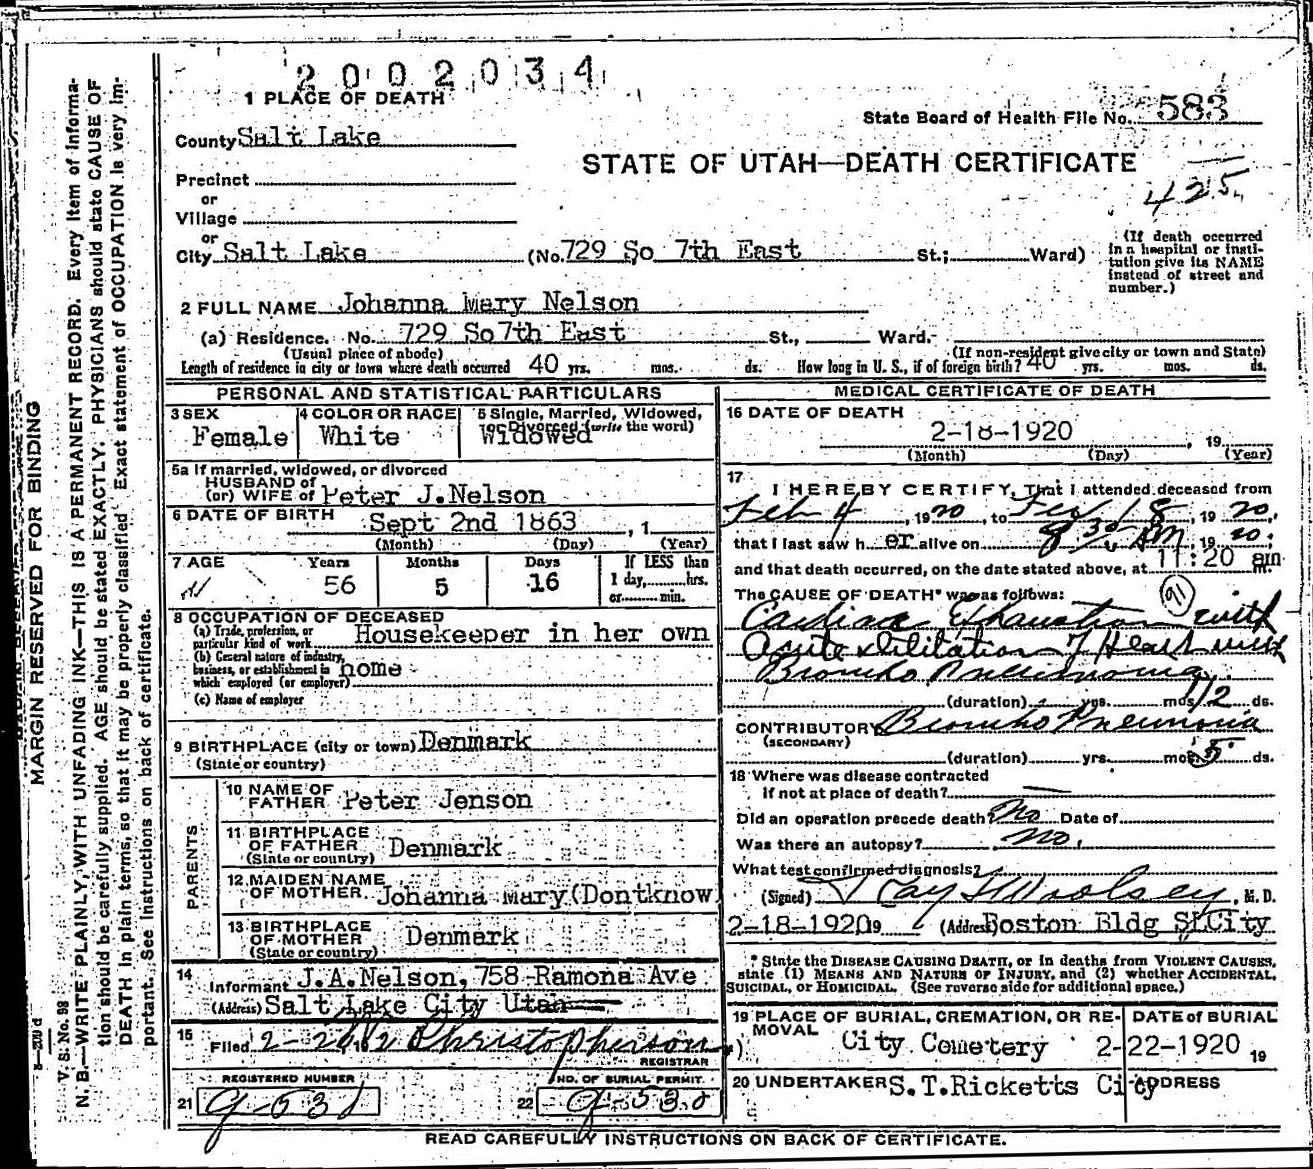 2002034
1 PLACE OF DEATH
State Board of Health File No. 583
County Salt Lake
STATE OF UTAH—DEATH CERTIFICATE
425
Precinct
or
Village
or
City Salt Lake (No. 729 So 7th East St.; Ward)
(If death occurred
in a hospital or insti-
tution give its NAME
instead of street and
number.)
2 FULL NAME Johanna Mary Nelson
(a) Residence. No. 729 So 7th East St., Ward.
(Usual place of abode) (If non-resident give city or town and State)
Length of residence in city or town where death occurred 40 yrs. mos. ds. How long in U. S., if of foreign birth? 40 yrs. mos. ds.
PERSONAL AND STATISTICAL PARTICULARS
3 SEX Female
4 COLOR OR RACE White
5 Single, Married, Widowed,
or Divorced (write the word)
Widowed
5a If married, widowed, or divorced
HUSBAND of
(or) WIFE of Peter J. Nelson
6 DATE OF BIRTH Sept 2nd 1863, 1
(Month) (Day) (Year)
7 AGE Years Months Days If LESS than
56 5 16 1 day,......hrs.
or......min.
8 OCCUPATION OF DECEASED
(a) Trade, profession, or
particular kind of work Housekeeper in her own
(b) General nature of industry,
business, or establishment in home
which employed (or employer)
(c) Name of employer
9 BIRTHPLACE (city or town) Denmark
(State or country)
PARENTS
10 NAME OF
FATHER Peter Jenson
11 BIRTHPLACE
OF FATHER Denmark
(State or country)
12 MAIDEN NAME
OF MOTHER Johanna Mary (Dontknow
13 BIRTHPLACE
OF MOTHER Denmark
(State or country)
14
Informant J.A.Nelson, 758 Ramona Ave
(Address) Salt Lake City Utah
15
Filed 2-20 Christopherson
REGISTRAR
REGISTERED NUMBER
21
NO. OF BURIAL PERMIT
22
MEDICAL CERTIFICATE OF DEATH
16 DATE OF DEATH
2-18-1920, 19
(Month) (Day) (Year)
17
I HEREBY CERTIFY, That I attended deceased from
Feb 4, 1920, to Feb 18, 1920,
that I last saw her alive on 8 30 AM, 1920,
and that death occurred, on the date stated above, at 11:20 am m.
The CAUSE OF DEATH* was as follows:
91
Cardiac Exhaustion with
Acute dilitation of Heart with
Broncho Pneumonia
(duration) yrs. mos. 12 ds.
CONTRIBUTORY Broncho Pneumonia
(SECONDARY)
(duration) yrs. mos. 5 ds.
18 Where was disease contracted
if not at place of death?
Did an operation precede death? No Date of
Was there an autopsy? No.
What test confirmed diagnosis?
(Signed) Ray Woolsey, M. D.
2-18-1920 19 (Address) Boston Bldg SLCity
* State the DISEASE CAUSING DEATH, or in deaths from VIOLENT CAUSES,
state (1) MEANS AND NATURE OF INJURY, and (2) whether ACCIDENTAL,
SUICIDAL, or HOMICIDAL. (See reverse side for additional space.)
19 PLACE OF BURIAL, CREMATION, OR RE-
MOVAL City Cemetery
DATE of BURIAL
2-22-1920 19
20 UNDERTAKER S.T.Ricketts City
ADDRESS
READ CAREFULLY INSTRUCTIONS ON BACK OF CERTIFICATE.
MARGIN RESERVED FOR BINDING
V. S. No. 98
N. B.—WRITE PLAINLY, WITH UNFADING INK—THIS IS A PERMANENT RECORD. Every item of informa-
tion should be carefully supplied. AGE should be stated EXACTLY. PHYSICIANS should state CAUSE OF
DEATH in plain terms, so that it may be properly classified. Exact statement of OCCUPATION is very im-
portant. See instructions on back of certificate.